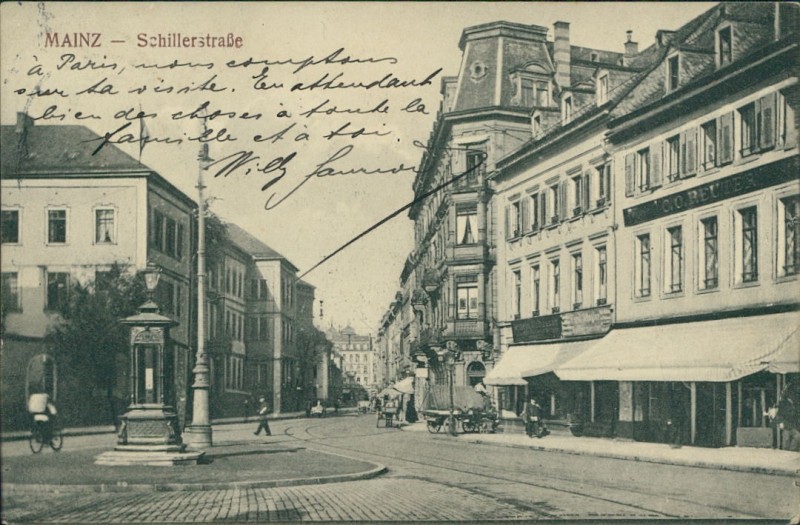 MAINZ — Schillerstraße
à Paris, nous comptons
sur ta visite. En attendant
bien des choses à toute la
famille et à toi.
Willy
C.O. REUTER